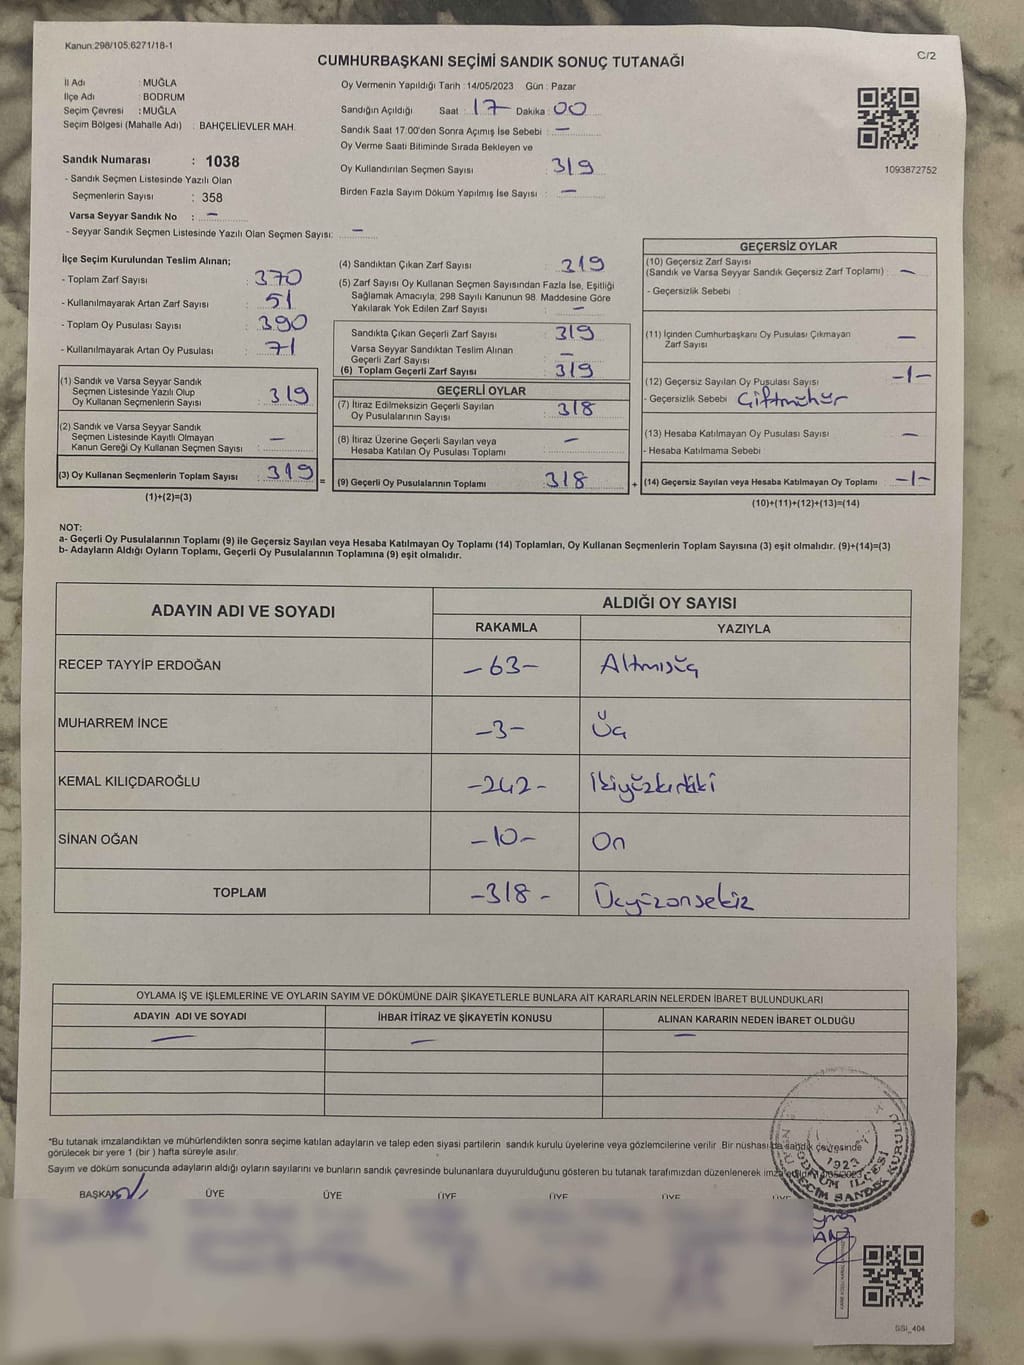 Kanun:298/105,6271/18-1
C/2
CUMHURBAŞKANI SEÇİMİ SANDIK SONUÇ TUTANAĞI
İl Adı : MUĞLA
İlçe Adı : BODRUM
Seçim Çevresi : MUĞLA
Seçim Bölgesi (Mahalle Adı) : BAHÇELİEVLER MAH.
Sandık Numarası : 1038
- Sandık Seçmen Listesinde Yazılı Olan
Seçmenlerin Sayısı : 358
Varsa Seyyar Sandık No : –
- Seyyar Sandık Seçmen Listesinde Yazılı Olan Seçmen Sayısı: –
Oy Vermenin Yapıldığı Tarih : 14/05/2023 Gün : Pazar
Sandığın Açıldığı Saat : 17 Dakika : 00
Sandık Saat 17:00'den Sonra Açımış İse Sebebi : –
Oy Verme Saati Bitiminde Sırada Bekleyen ve
Oy Kullandırılan Seçmen Sayısı : 319
Birden Fazla Sayım Döküm Yapılmış İse Sayısı : –
1093872752
İlçe Seçim Kurulundan Teslim Alınan;
- Toplam Zarf Sayısı : 370
- Kullanılmayarak Artan Zarf Sayısı : 51
- Toplam Oy Pusulası Sayısı : 390
- Kullanılmayarak Artan Oy Pusulası : 71
(1) Sandık ve Varsa Seyyar Sandık
Seçmen Listesinde Yazılı Olup
Oy Kullanan Seçmenlerin Sayısı : 319
(2) Sandık ve Varsa Seyyar Sandık
Seçmen Listesinde Kayıtlı Olmayan
Kanun Gereği Oy Kullanan Seçmen Sayısı : –
(3) Oy Kullanan Seçmenlerin Toplam Sayısı : 319 =
(1)+(2)=(3)
(4) Sandıktan Çıkan Zarf Sayısı : 319
(5) Zarf Sayısı Oy Kullanan Seçmen Sayısından Fazla İse, Eşitliği
Sağlamak Amacıyla, 298 Sayılı Kanunun 98. Maddesine Göre
Yakılarak Yok Edilen Zarf Sayısı : –
Sandıkta Çıkan Geçerli Zarf Sayısı : 319
Varsa Seyyar Sandıktan Teslim Alınan
Geçerli Zarf Sayısı : –
(6) Toplam Geçerli Zarf Sayısı : 319
GEÇERLİ OYLAR
(7) İtiraz Edilmeksizin Geçerli Sayılan
Oy Pusulalarının Sayısı : 318
(8) İtiraz Üzerine Geçerli Sayılan veya
Hesaba Katılan Oy Pusulası Toplamı : –
(9) Geçerli Oy Pusulalarının Toplamı : 318 +
GEÇERSİZ OYLAR
(10) Geçersiz Zarf Sayısı
(Sandık ve Varsa Seyyar Sandık Geçersiz Zarf Toplamı) : –
- Geçersizlik Sebebi :
(11) İçinden Cumhurbaşkanı Oy Pusulası Çıkmayan
Zarf Sayısı : –
(12) Geçersiz Sayılan Oy Pusulası Sayısı : -1-
- Geçersizlik Sebebi : Çiftmühür
(13) Hesaba Katılmayan Oy Pusulası Sayısı : –
- Hesaba Katılmama Sebebi
(14) Geçersiz Sayılan veya Hesaba Katılmayan Oy Toplamı : -1-
(10)+(11)+(12)+(13)=(14)
NOT:
a- Geçerli Oy Pusulalarının Toplamı (9) ile Geçersiz Sayılan veya Hesaba Katılmayan Oy Toplamı (14) Toplamları, Oy Kullanan Seçmenlerin Toplam Sayısına (3) eşit olmalıdır. (9)+(14)=(3)
b- Adayların Aldığı Oyların Toplamı, Geçerli Oy Pusulalarının Toplamına (9) eşit olmalıdır.
ADAYIN ADI VE SOYADI
ALDIĞI OY SAYISI
RAKAMLA YAZIYLA
RECEP TAYYİP ERDOĞAN -63- Altmışüç
MUHARREM İNCE -3- Üç
KEMAL KILIÇDAROĞLU -242- İkiyüzkırkiki
SİNAN OĞAN -10- On
TOPLAM -318- Üçyüzonsekiz
OYLAMA İŞ VE İŞLEMLERİNE VE OYLARIN SAYIM VE DÖKÜMÜNE DAİR ŞİKAYETLERLE BUNLARA AİT KARARLARIN NELERDEN İBARET BULUNDUKLARI
ADAYIN ADI VE SOYADI İHBAR İTİRAZ VE ŞİKAYETİN KONUSU ALINAN KARARIN NEDEN İBARET OLDUĞU
– – –
*Bu tutanak imzalandıktan ve mühürlendikten sonra seçime katılan adayların ve talep eden siyasi partilerin sandık kurulu üyelerine veya gözlemcilerine verilir. Bir nüshası da sandık çevresinde
görülecek bir yere 1 (bir ) hafta süreyle asılır.
Sayım ve döküm sonucunda adayların aldığı oyların sayılarını ve bunların sandık çevresinde bulunanlara duyurulduğunu gösteren bu tutanak tarafımızdan düzenlenerek
1923
BODRUM İLÇESİ
SEÇİM SANDIK KURULU
BAŞKAN ÜYE ÜYE ÜYE ÜYE ÜYE ÜYE
SSI_404